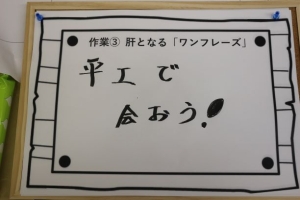 作業③ 肝となる「ワンフレーズ」
平工で
会おう!